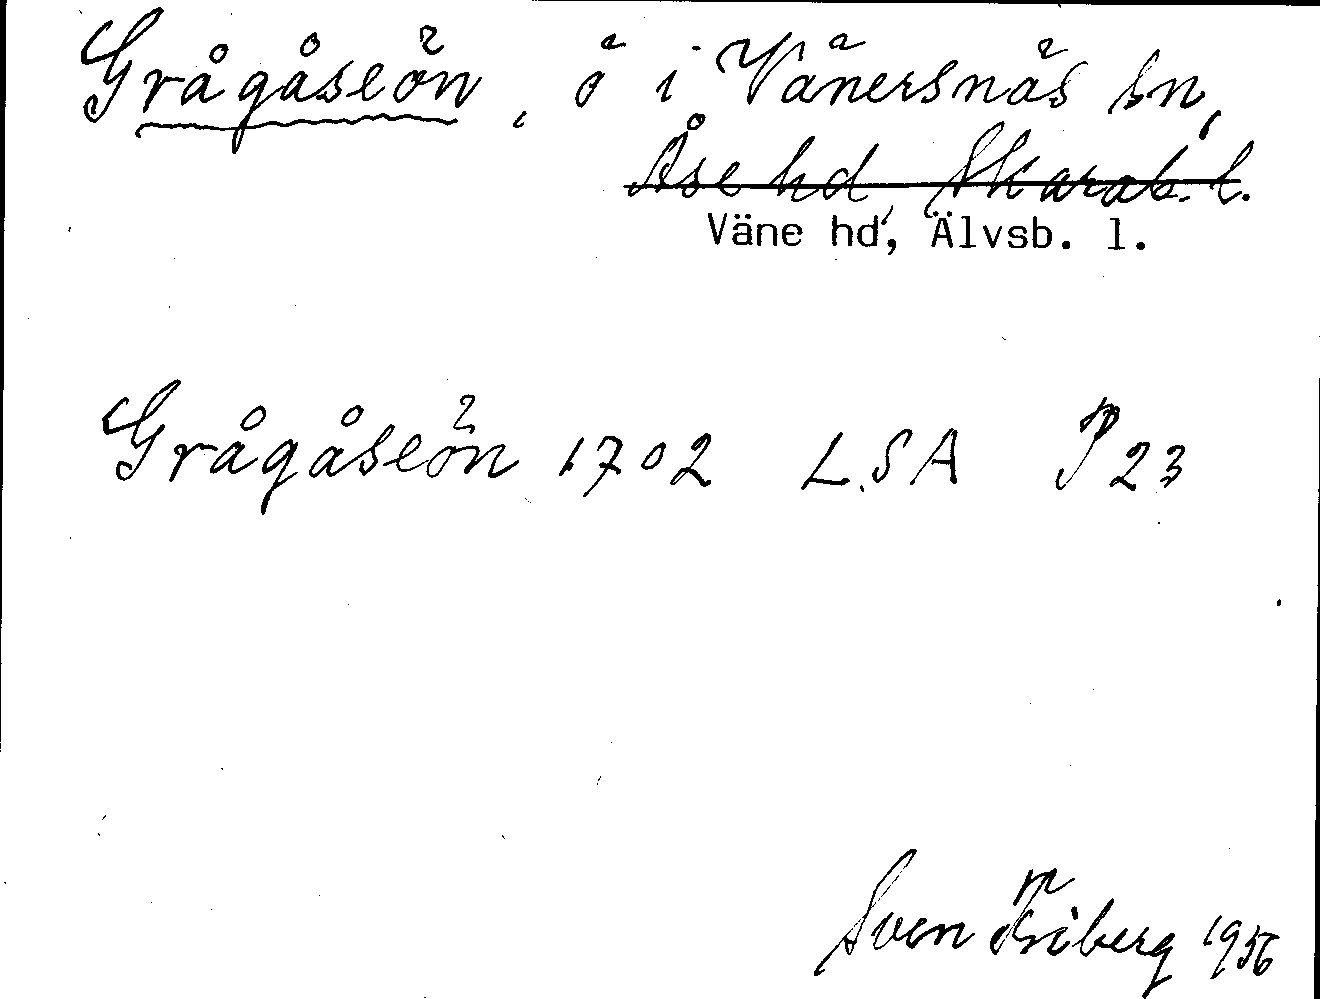 Grågåseön, ö i Vänersnäs sn,
Åse hd, Skarab. l.
Väne hd, Älvsb. l.
Grågåseön 1702 LSA P 23
Sven Friberg 1956